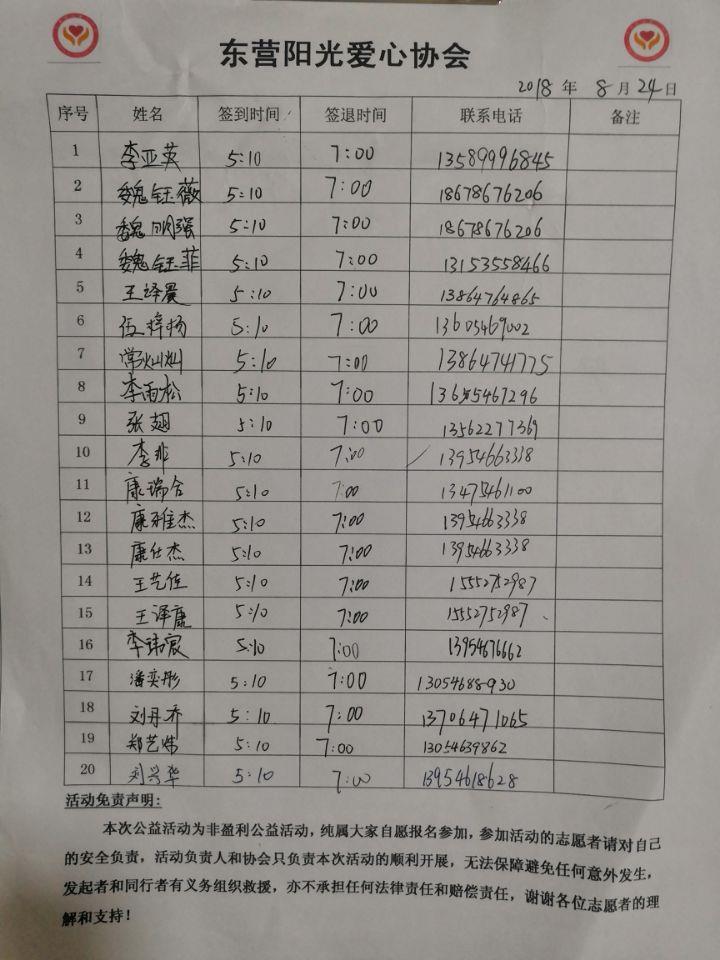 东营阳光爱心协会
2018 年 8 月 24 日
序号 姓名 签到时间 签退时间 联系电话 备注
1 李亚英 5:10 7:00 13589996845
2 魏钰薇 5:10 7:00 18678676206
3 魏明强 5:10 7:00 18678676206
4 魏钰菲 5:10 7:00 13153558466
5 王译晨 5:10 7:00 13864764865
6 伍梓扬 5:10 7:00 13605469002
7 常灿灿 5:10 7:00 13864741775
8 李雨松 5:10 7:00
9 张翅 5:10 7:00 13562277369
10 李非 5:10 7:00 13954663338
11 康瑞合 5:10 7:00 13475461100
12 康雅杰 5:10 7:00 13954663338
13 康仕杰 5:10 7:00 13954663338
14 王艺佳 5:10 7:00 15552752987
15 王译康 5:10 7:00 15552752987
16 李玮宸 5:10 7:00 13954676662
17 潘奕彤 5:10 7:00 13054688930
18 刘丹乔 5:10 7:00 13706471065
19 郑艺炜 5:10 7:00 13054639862
20 刘兴华 5:10 7:00 13954618628
活动免责声明:
本次公益活动为非盈利公益活动，纯属大家自愿报名参加，参加活动的志愿者请对自己
的安全负责，活动负责人和协会只负责本次活动的顺利开展，无法保障避免任何意外发生，
发起者和同行者有义务组织救援，亦不承担任何法律责任和赔偿责任，谢谢各位志愿者的理
解和支持!